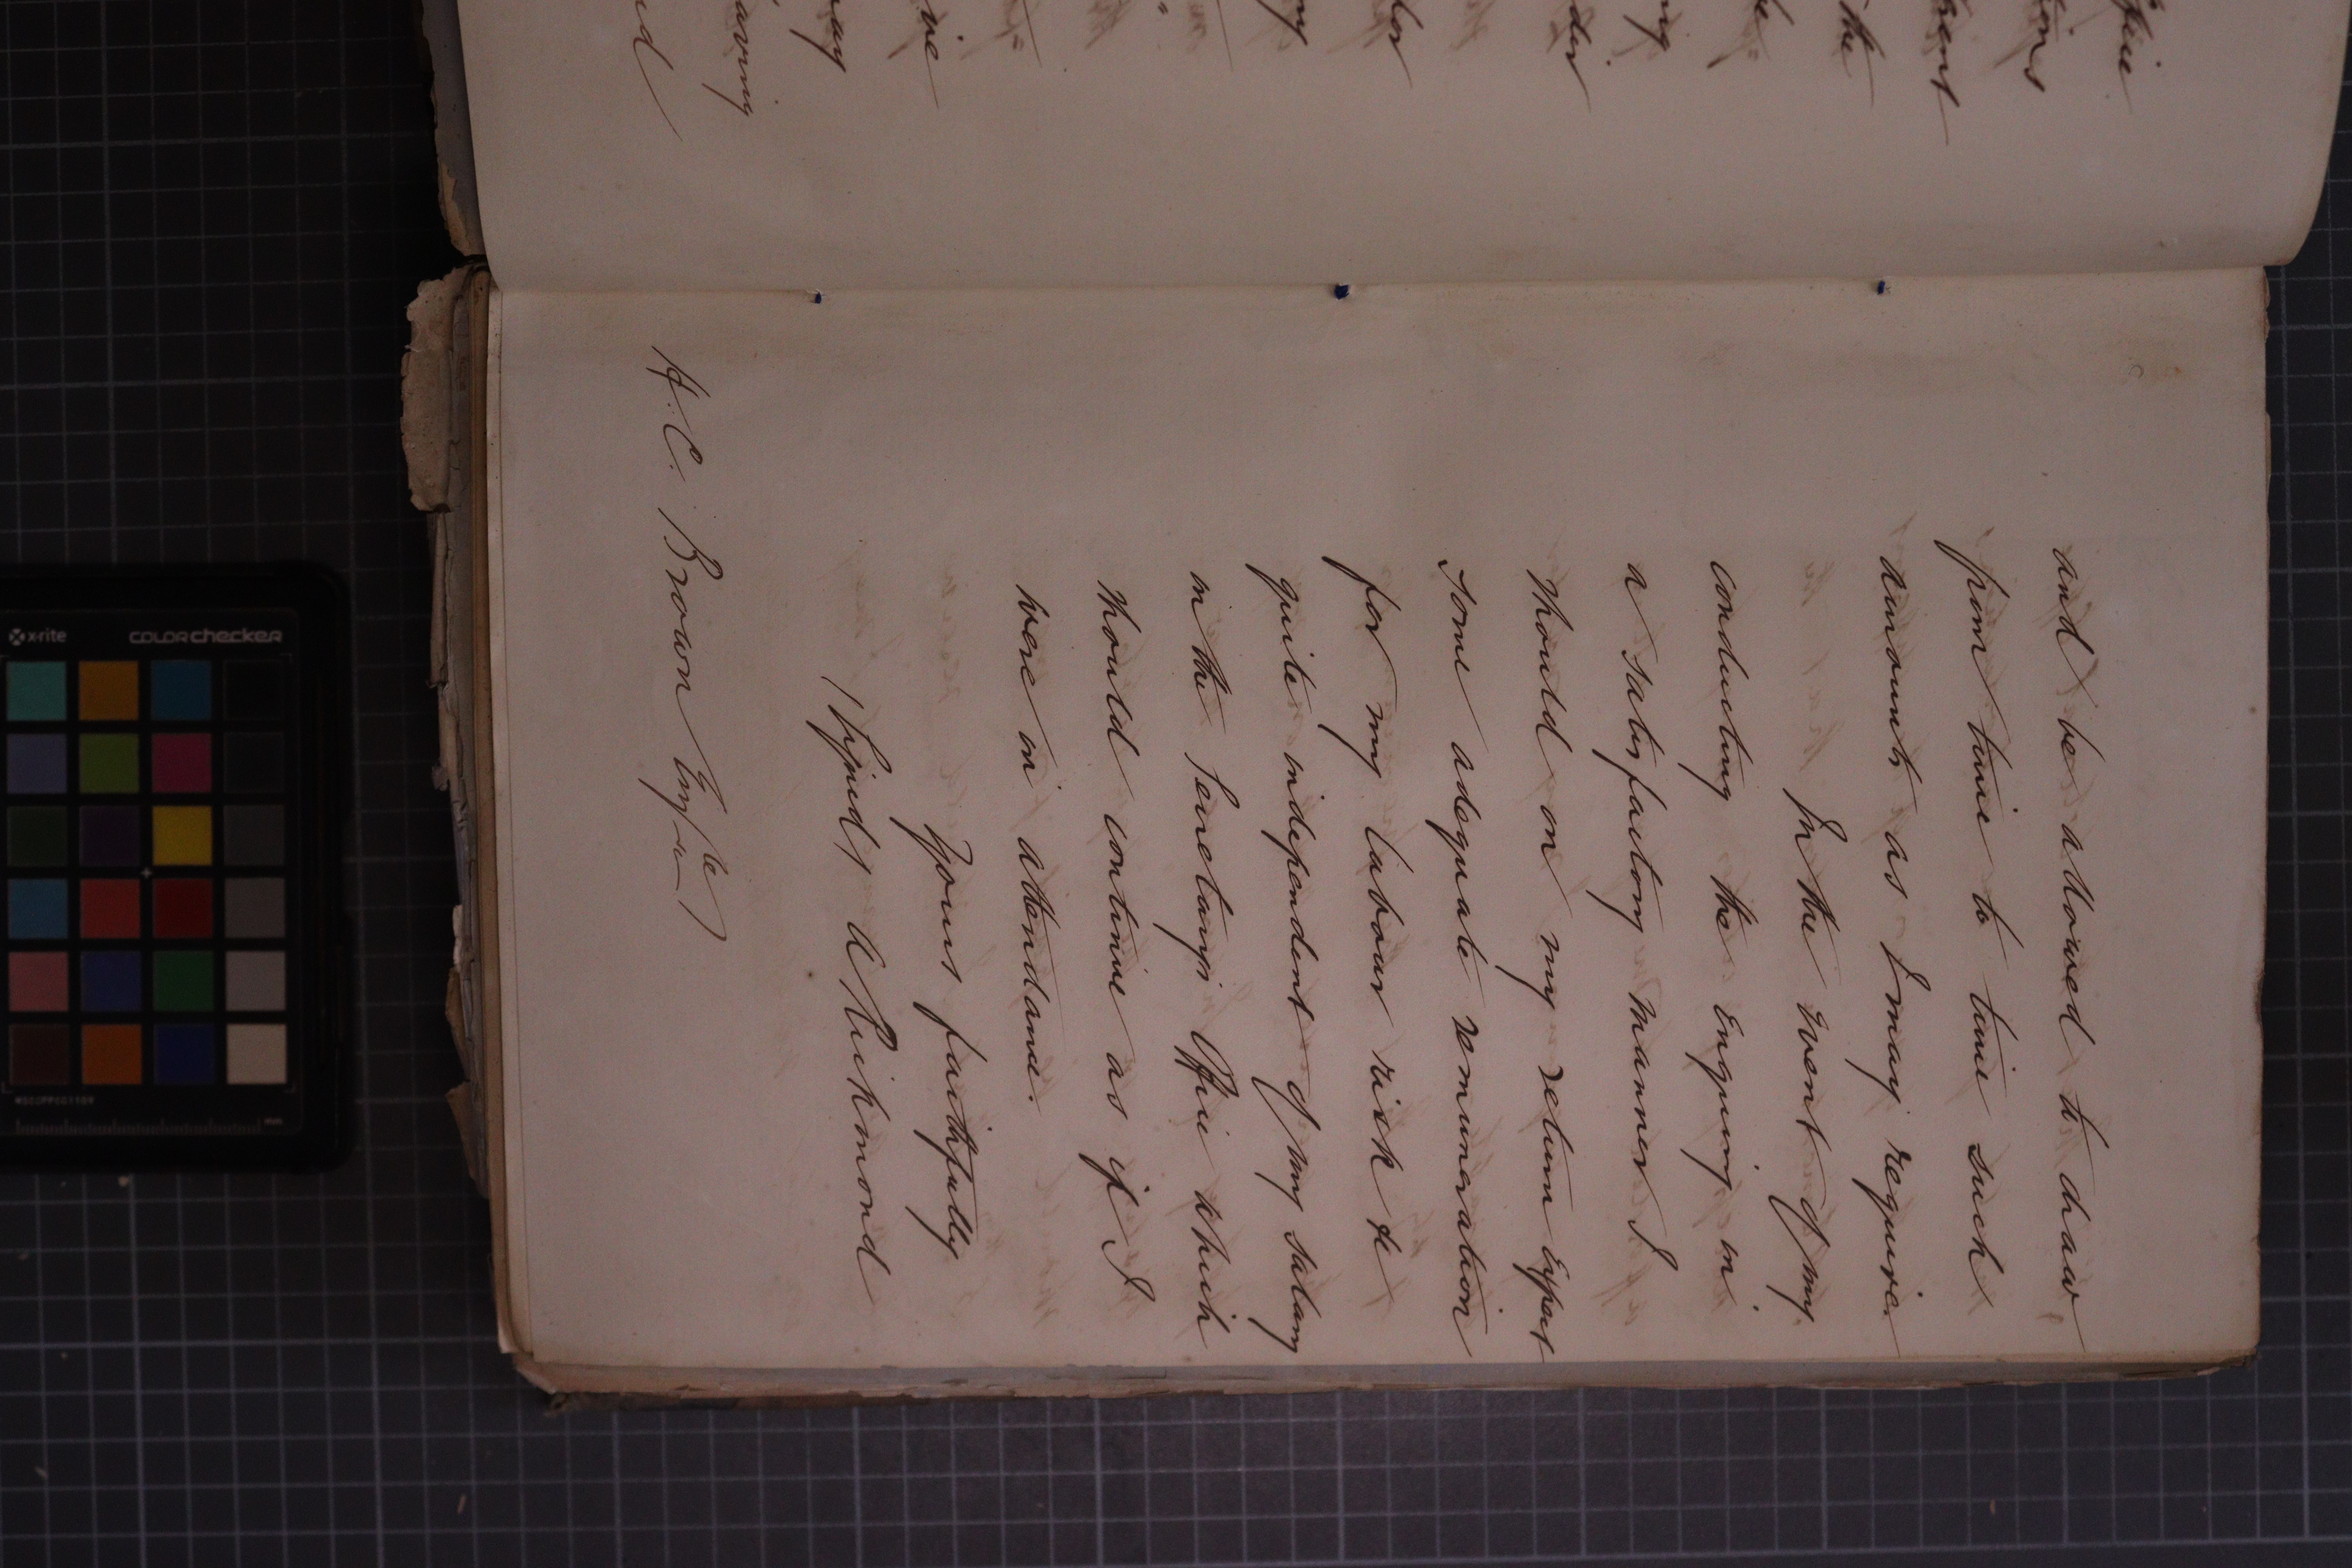 and be allowed to draw
from time to time such
amount as I may require.
In the event of my
conducting the Enquiry in
a satisfactory manner I
should on my return expect
some adequate remuneration
for my labour risk &c
quite independent of my salary
in the Secretarys Office which
should continue as if I
were in attendance.
Yours faithfully
(Signed) A Richmond
H. C. Brown Esqre
x-rite
COLORchecker
mm